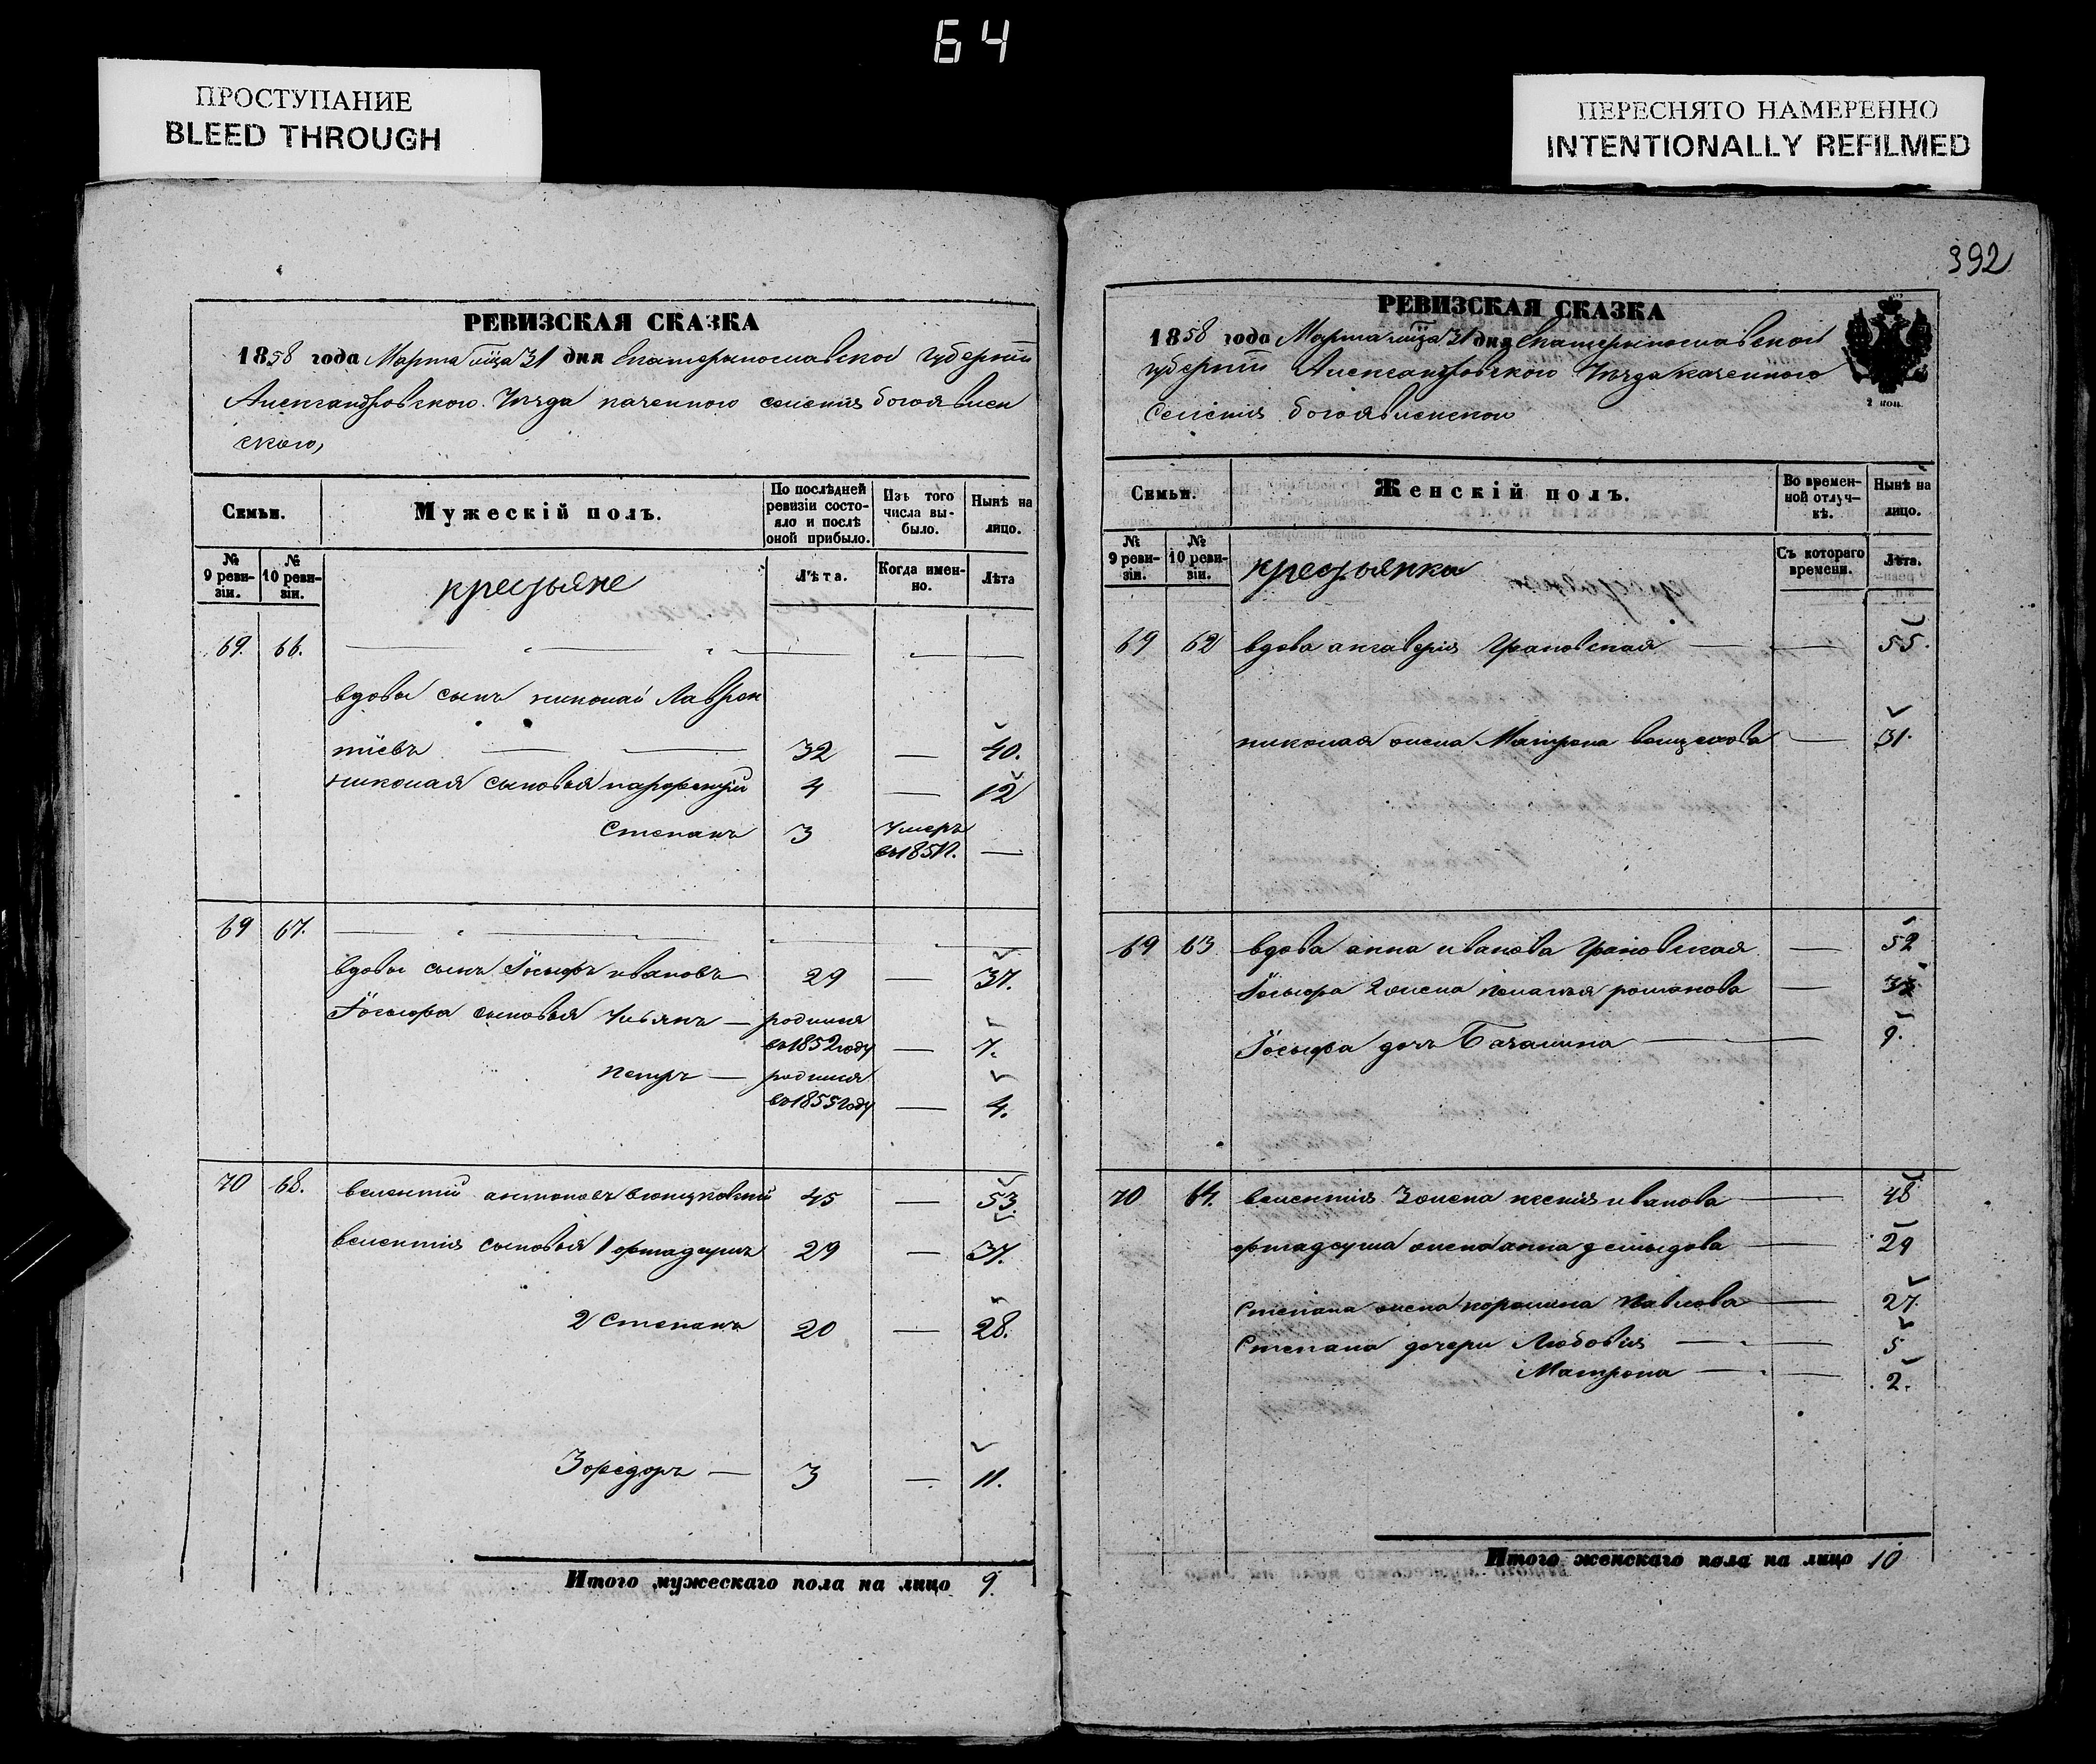 64
ПРОСТУПАНИЕ
BLEED THROUGH
ПЕРЕСНЯТО НАМЕРЕННО
INTENTIONALLY REFILMED
РЕВИЗСКАЯ СКАЗКА
1858 года Марта мца 31 дня Екатерынославской губернии
Александровского Уезда казенного селения богоявлен
ского,
Семьи.
Мужескій полъ.
По послѣдней ревизіи состояло и послѣ оной прибыло.
Изъ того числа выбыло.
Нынѣ на лицо.
№ 9 ревизіи.
№ 10 ревизіи.
крестьяне
Лѣта.
Когда именно.
Лѣта
69. 66.
вдовы сынъ николай Лаврен
тіевъ 32 — 40.
николая сыновья парфентій 4 — 12
Степанъ 3 Умеръ
въ 1851. —
69 67.
вдовы сынъ Іосыфъ ивановъ 29 — 37.
Іосыфа сыновья Ульянъ — родился
въ 1852 году — 7.
петръ — родился
въ 1855 году — 4.
70 68. велентій антоновъ 45 — 53.
велентія сыновья 1 фтадеушъ 29 — 37.
2 Степанъ 20 — 28.
3 федоръ — 3 — 11.
Итого мужескаго пола на лицо 9.
392
РЕВИЗСКАЯ СКАЗКА
1858 года Марта мца 31 дня Екатерынославской
губернии Александровского Уезда казенного
селения богоявленского
2 коп.
Семьи.
Женскій полъ.
Во временной отлучкѣ.
Нынѣ на лицо.
№ 9 ревизіи.
№ 10 ревизіи.
крестьянка
Съ котораго времени.
Лѣта.
69 62 вдова Грановская — 55.
николая жена Матрона — 31.
69 63 вдова анна иванова Грановская — 52
Іосыфа 2 жена романова —
Іосыфа дочь — 9.
70 64. велентія 3 жена ксенія иванова — 48
фтадеуша жена анна демыдова — 29
Степана жена Павлова — 27.
Степана дочери Любовія — 5
Матрона — 2.
Итого женскаго пола на лицо 10